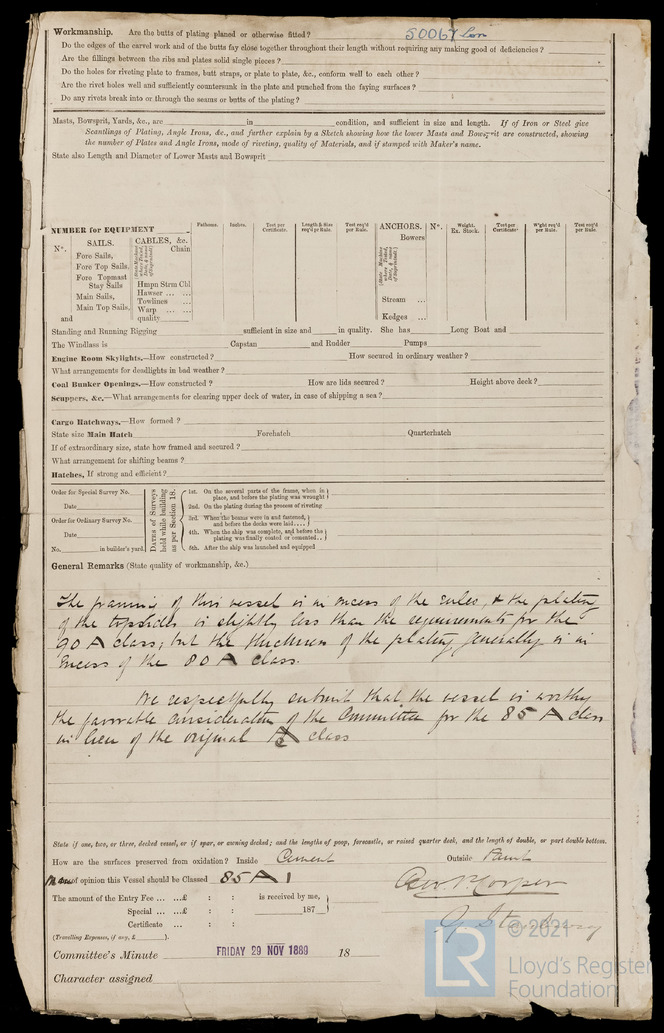 50067 Lon
Workmanship. Are the butts of plating planed or otherwise fitted?
Do the edges of the carvel work and of the butts lay close together throughout their length without requiring any making good of deficiencies?
Are the fillings between the ribs and plates solid single pieces?
Do the holes for riveting plate to frames, butt straps, or plate to plate, &c., conform well to each other?
Are the rivet holes well and sufficiently countersunk in the plate and punched from the faying surfaces?
Do any rivets break into or through the seams or butts of the plating?
Masts, Bowsprit, Yards, &c., are in condition, and sufficient in size and length. If of Iron or Steel give
Scantlings of Plating, Angle Irons, &c., and further explain by a Sketch showing how the lower Masts and Bowsprit are constructed, showing
the number of Plates and Angle Irons, mode of riveting, quality of Materials, and if stamped with Maker's name.
State also Length and Diameter of Lower Masts and Bowsprit
NUMBER for EQUIPMENT
Fathoms. Inches. Test per Certificate. Length & Size req'd per Rule. Test req'd per Rule. ANCHORS. No. Weight. Ex. Stock. Test per Certificate. W'ght req'd per Rule. Test req'd per Rule.
No. SAILS. CABLES, &c. Bowers
Fore Sails, Chain
Fore Top Sails,
Fore Topmast
Stay Sails Hmpn Strm Cbl
Main Sails, Hawser ... ... Stream ...
Main Top Sails, Towlines ...
Warp ... ... Kedges ...
and quality
Standing and Running Rigging sufficient in size and in quality. She has Long Boat and
The Windlass is Capstan and Rudder Pumps
Engine Room Skylights.—How constructed? How secured in ordinary weather?
What arrangements for deadlights in bad weather?
Coal Bunker Openings.—How constructed? How are lids secured? Height above deck?
Scuppers, &c.—What arrangements for clearing upper deck of water, in case of shipping a sea?
Cargo Hatchways.—How formed?
State size Main Hatch Forehatch Quarterhatch
If of extraordinary size, state how framed and secured?
What arrangement for shifting beams?
Hatches, If strong and efficient?
Order for Special Survey No.
Date
Order for Ordinary Survey No.
Date
No. in builder's yard.
DATES of Surveys
held while building
as per Section 18.
1st. On the several parts of the frame, when in
place, and before the plating was wrought
2nd. On the plating during the process of riveting
3rd. When the beams were in and fastened,
and before the decks were laid....
4th. When the ship was complete, and before the
plating was finally coated or cemented..
5th. After the ship was launched and equipped
General Remarks (State quality of workmanship, &c.)
The framing of this vessel is in excess of the rules, & the plating
of the topsides is slightly less than the requirements for the
90 A class; but the thickness of the plating generally is in
excess of the 80 A class.
We respectfully submit that the vessel is worthy
the favorable consideration of the Committee for the 85 A class
in lieu of the original class
State if one, two, or three, decked vessel, or if spar, or awning decked; and the lengths of poop, forecastle, or raised quarter deck, and the length of double, or part double bottom.
How are the surfaces preserved from oxidation? Inside Cement Outside Paint
of opinion this Vessel should be Classed 85 A 1
The amount of the Entry Fee ... ...£ : : is received by me,
Special ... ...£ : : 187
Certificate ... : :
(Travelling Expenses, if any, £ ).
Committee's Minute FRIDAY 29 NOV 1889 18
Character assigned
© 2021
LR
Lloyd's Register
Foundation